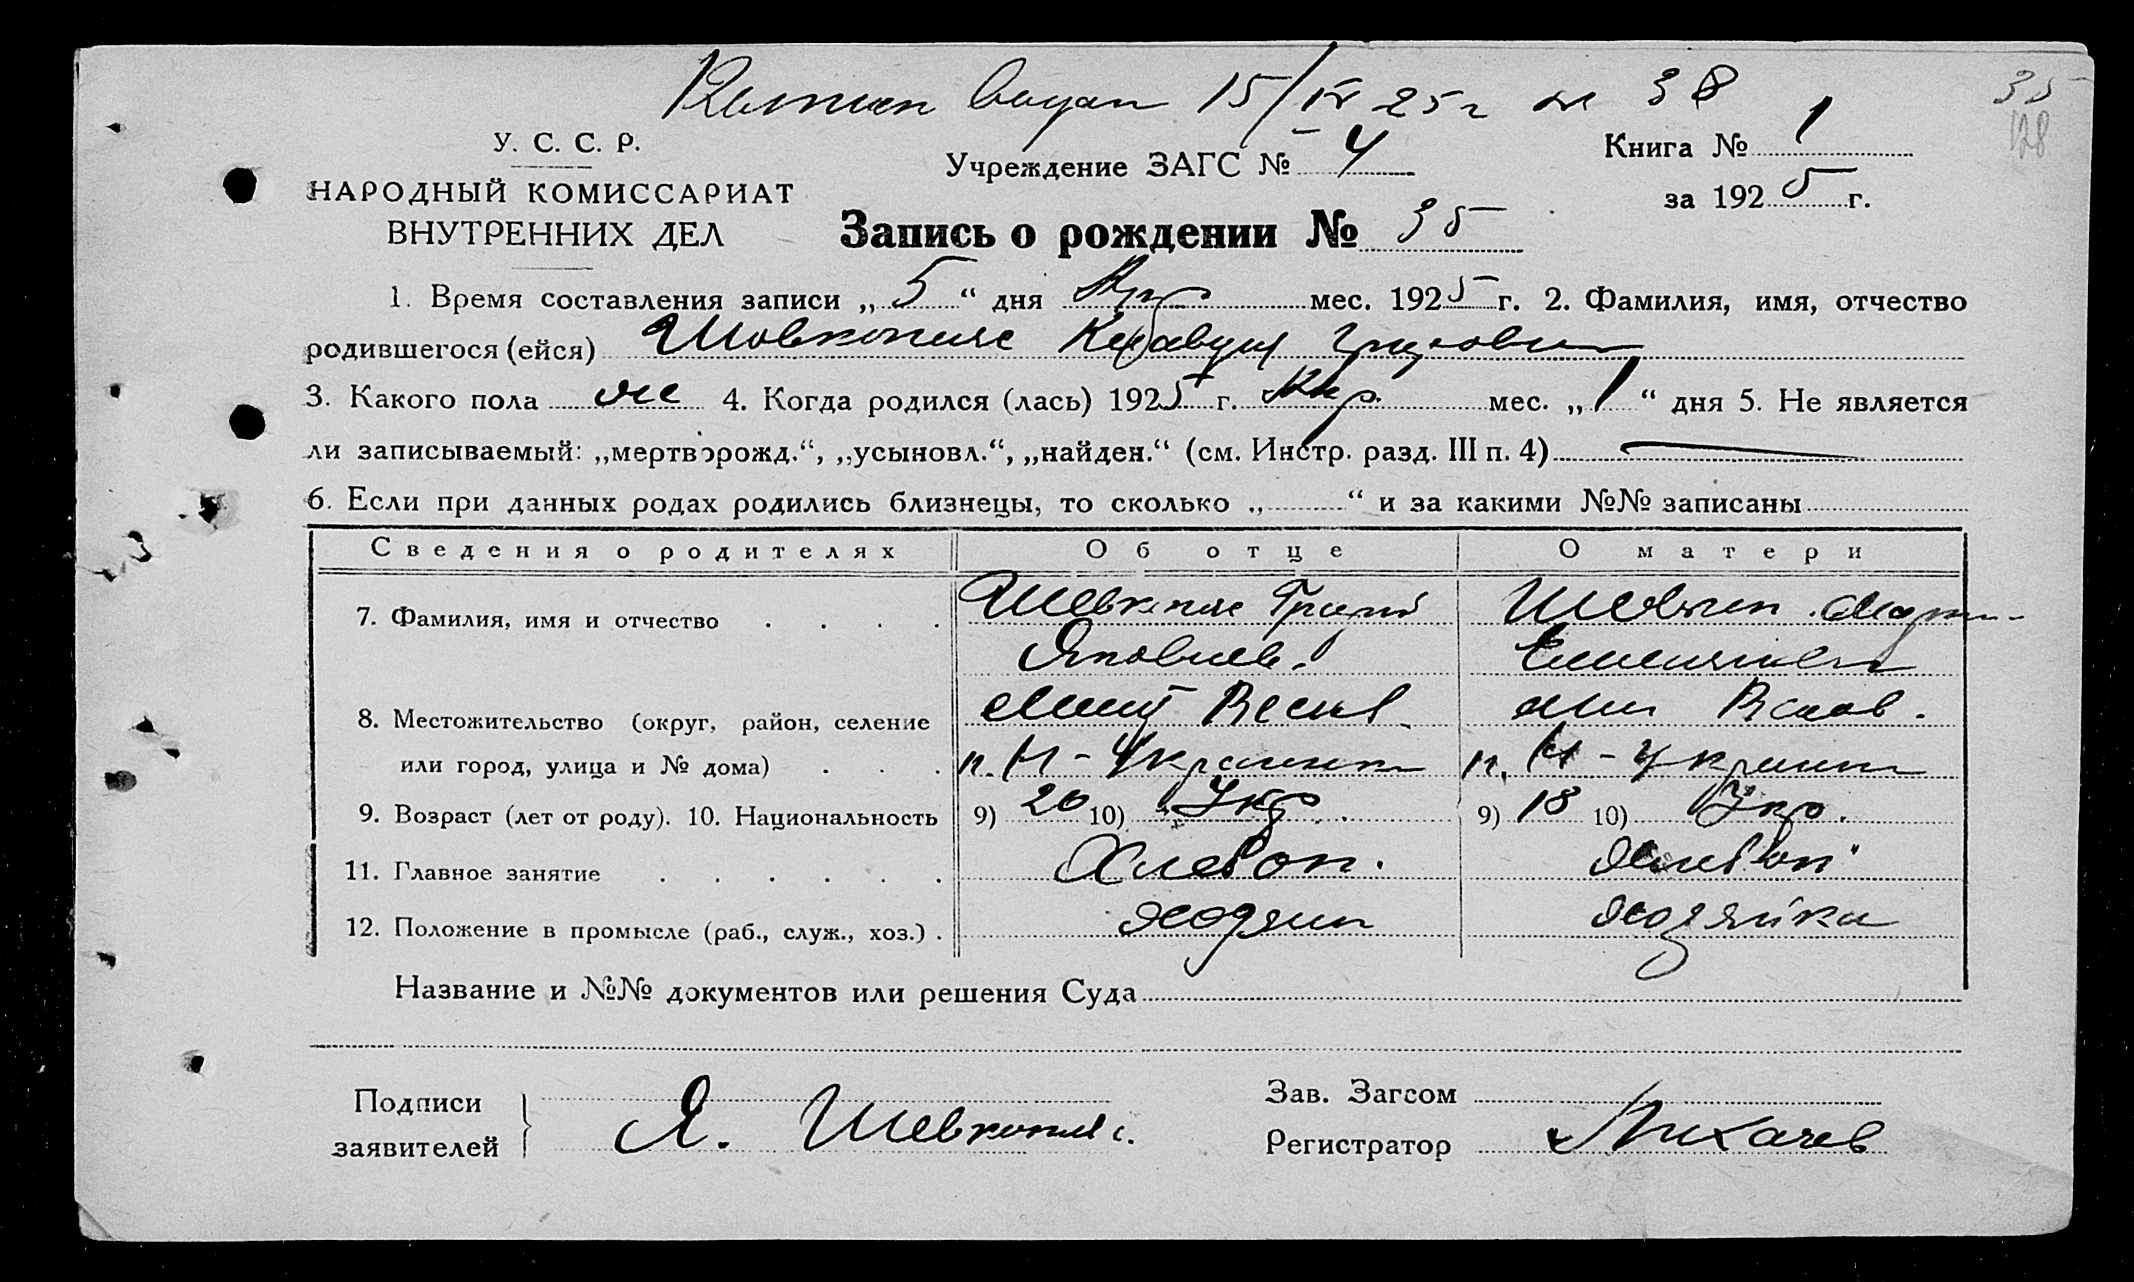 15/IV 25 г № 38
35
128
У. С. С. Р.
НАРОДНЫЙ КОМИССАРИАТ
ВНУТРЕННИХ ДЕЛ
Учреждение ЗАГС № 4
Книга № 1
за 1925 г.
Запись о рождении № 35
1. Время составления записи „5“ дня Апр мес. 1925 г. 2. Фамилия, имя, отчество
родившегося (ейся) Шовкопляс
3. Какого пола 4. Когда родился (лась) 1925 г. Апр. мес. „1“ дня 5. Не является
ли записываемый: „мертворожд.“, „усыновл.“, „найден.“ (см. Инстр. разд. III п. 4)
6. Если при данных родах родились близнецы, то сколько „ “ и за какими №№ записаны
Сведения о родителях Об отце О матери
7. Фамилия, имя и отчество Шевкопляс
Яковлев.
8. Местожительство (округ, район, селение
или город, улица и № дома) п. Н-Украинка п. Н-Украинка
9. Возраст (лет от роду). 10. Национальность 9) 26 10) Укр. 9) 18 10) Укр.
11. Главное занятие Хлебоп. Хлебоп
12. Положение в промысле (раб., служ., хоз.) Хозяин Хозяйка
Название и №№ документов или решения Суда
Подписи
заявителей
Я. Шевкопляс.
Зав. Загсом
Регистратор Лихачев